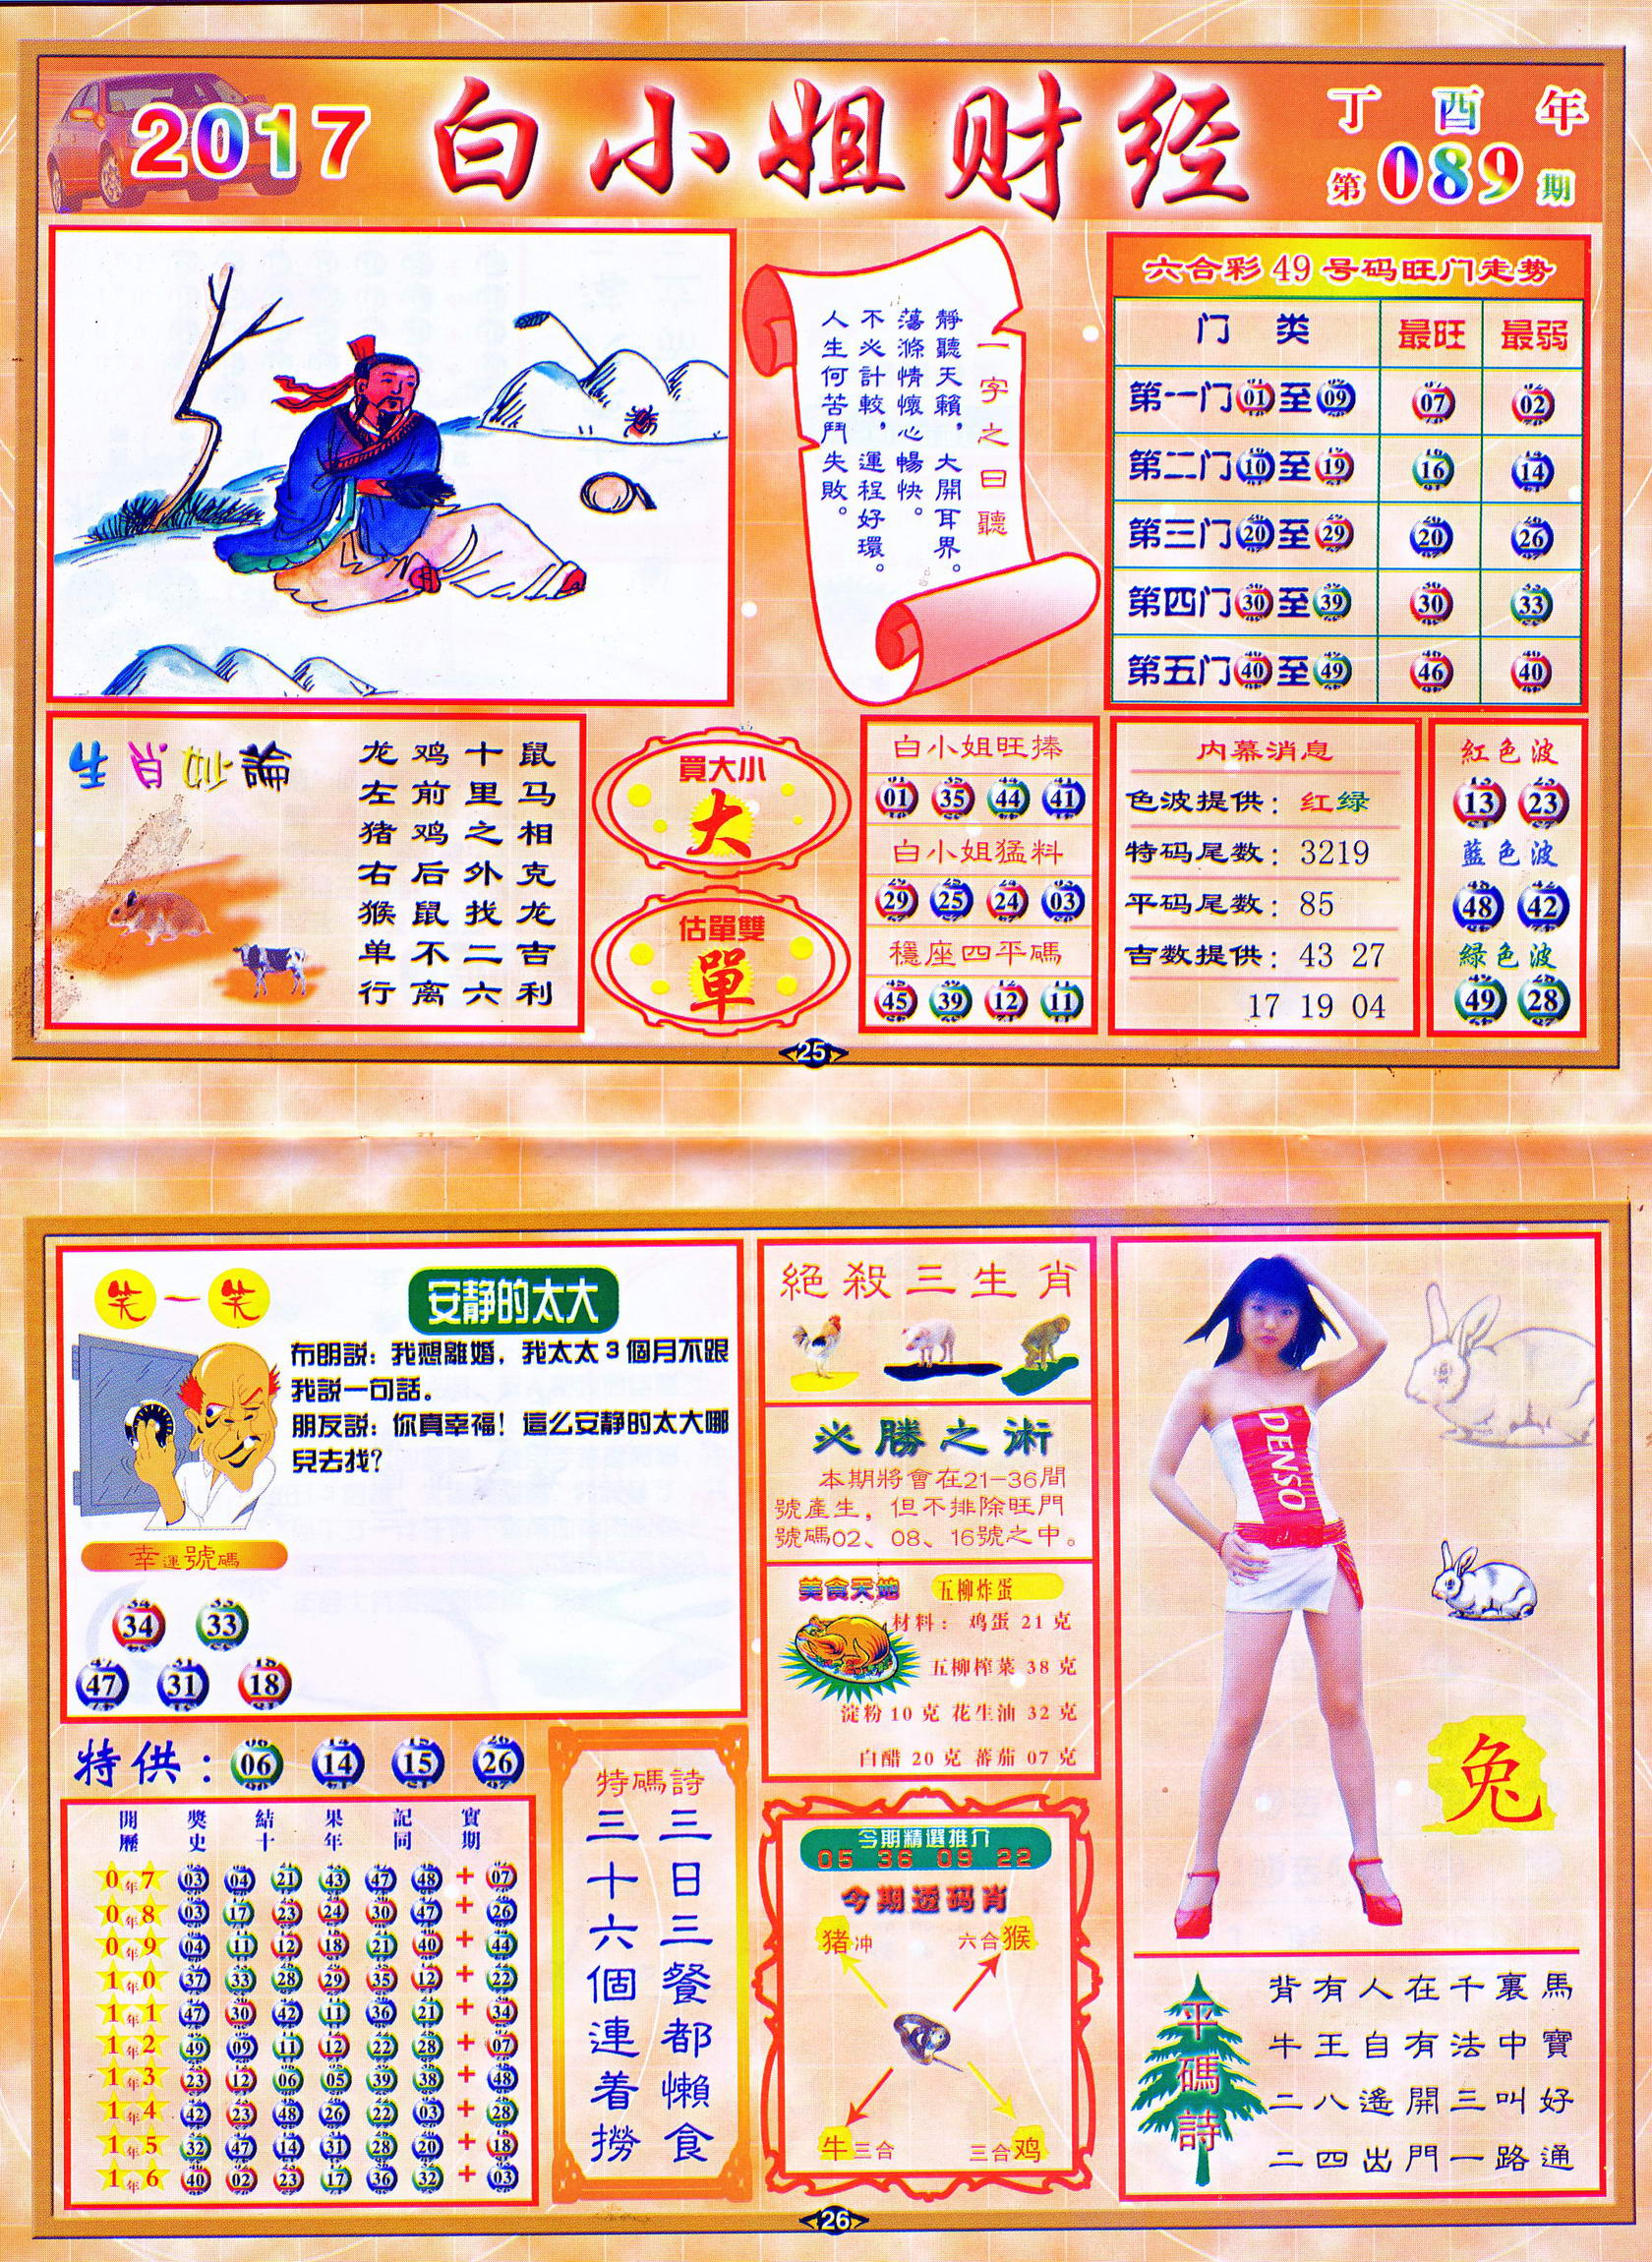 2017
白小姐财经
丁酉年
第089期
一字之曰聽
靜聽天籟，大開耳界。
蕩滌情懷心暢快。
不必計較，運程好環。
人生何苦鬥失敗。
六合彩49号码旺门走势
门类 最旺 最弱
第一门01至09 07 02
第二门10至19 16 14
第三门20至29 20 26
第四门30至39 30 33
第五门40至49 46 40
生肖妙論
鼠马相克龙吉利
十里之外找二六
鸡前鸡后鼠不离
龙左猪右猴单行
買大小
大
估單雙
單
白小姐旺捧
01 35 44 41
白小姐猛料
29 25 24 03
穩座四平碼
45 39 12 11
内幕消息
色波提供：红绿
特码尾数：3219
平码尾数：85
吉数提供：43 27
17 19 04
紅色波
13 23
藍色波
48 42
緑色波
49 28
25
笑一笑
安靜的太大
布朗説：我想離婚，我太太3個月不跟
我説一句話。
朋友説：你真幸福！這么安靜的太大哪
兒去找？
幸運號碼
34 33
47 31 18
特供：06 14 15 26
開獎結果記實
歷史十年同期
07年 03 04 21 43 47 48 + 07
08年 03 17 23 24 30 47 + 26
09年 04 11 12 18 21 40 + 44
10年 37 33 28 29 35 12 + 22
11年 47 30 42 11 36 21 + 34
12年 49 09 11 12 22 28 + 07
13年 23 12 06 05 39 38 + 48
14年 42 23 48 26 22 03 + 28
15年 32 47 14 31 28 20 + 18
16年 40 02 23 17 36 32 + 03
特碼詩
三日三餐都懶食
三十六個連着撈
絕殺三生肖
必勝之術
本期將會在21-36間
號產生，但不排除旺門
號碼02、08、16號之中。
美食天地
五柳炸蛋
材料：鸡蛋 21 克
五柳榨菜 38 克
淀粉 10 克 花生油 32 克
白醋 20 克 蕃茄 07 克
今期精選推介
05 36 09 22
今期透码肖
猪冲
六合猴
牛三合
三合鸡
DENSO
兔
平碼詩
背有人在千裏馬
牛王自有法中寶
二八遙開三叫好
二四出門一路通
26